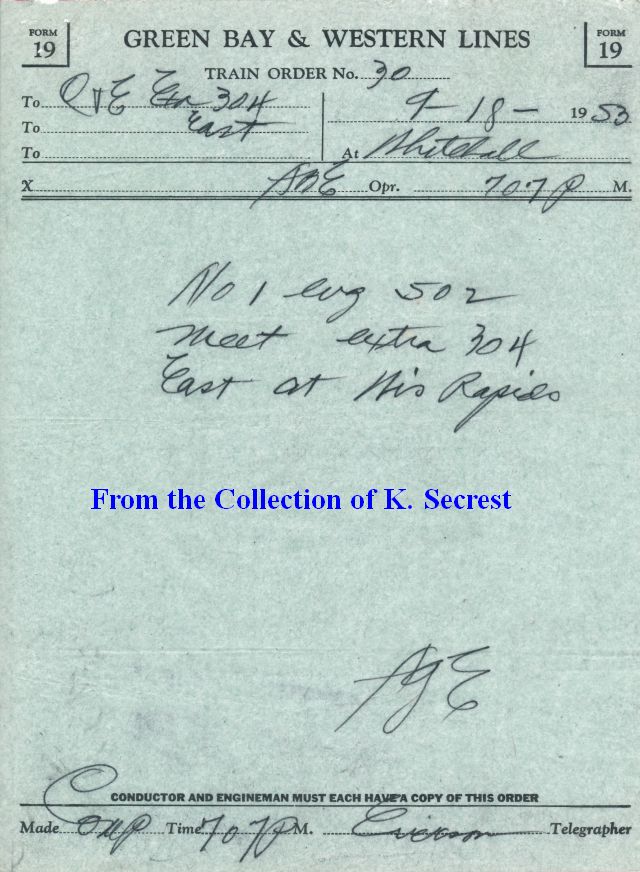 FORM 19
GREEN BAY & WESTERN LINES
FORM 19
TRAIN ORDER No. 30
To C & E Ex 304
To East
9-18- 1953
To
At Whitehall
X Opr. 707 P M.
No 1 eng 502
meet extra 304
East at Wis Rapids
From the Collection of K. Secrest
AGE
CONDUCTOR AND ENGINEMAN MUST EACH HAVE A COPY OF THIS ORDER
Made Comp Time 707 P M. Erickson Telegrapher